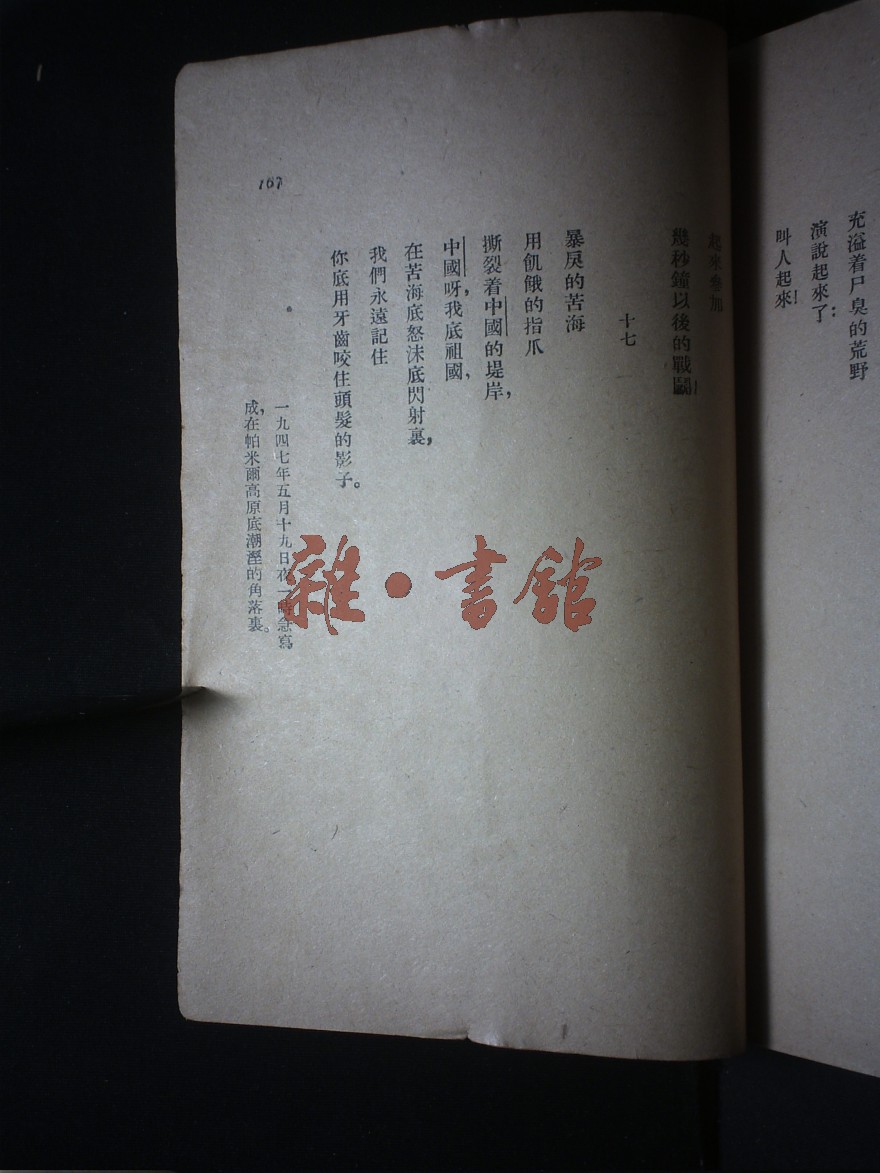 充溢着尸臭的荒野
演說起來了：
叫人起來！
起來參加
幾秒鐘以後的戰鬭！
十七
暴戾的苦海
用飢餓的指爪
撕裂着中國的堤岸，
中國呀，我底祖國、
在苦海底怒沫底閃射裏，
我們永遠記住
你底用牙齒咬住頭髮的影子。
一九四七年五月十九日夜一時急寫
成，在帕米爾高原底潮溼的角落裏。
167
雜·書館